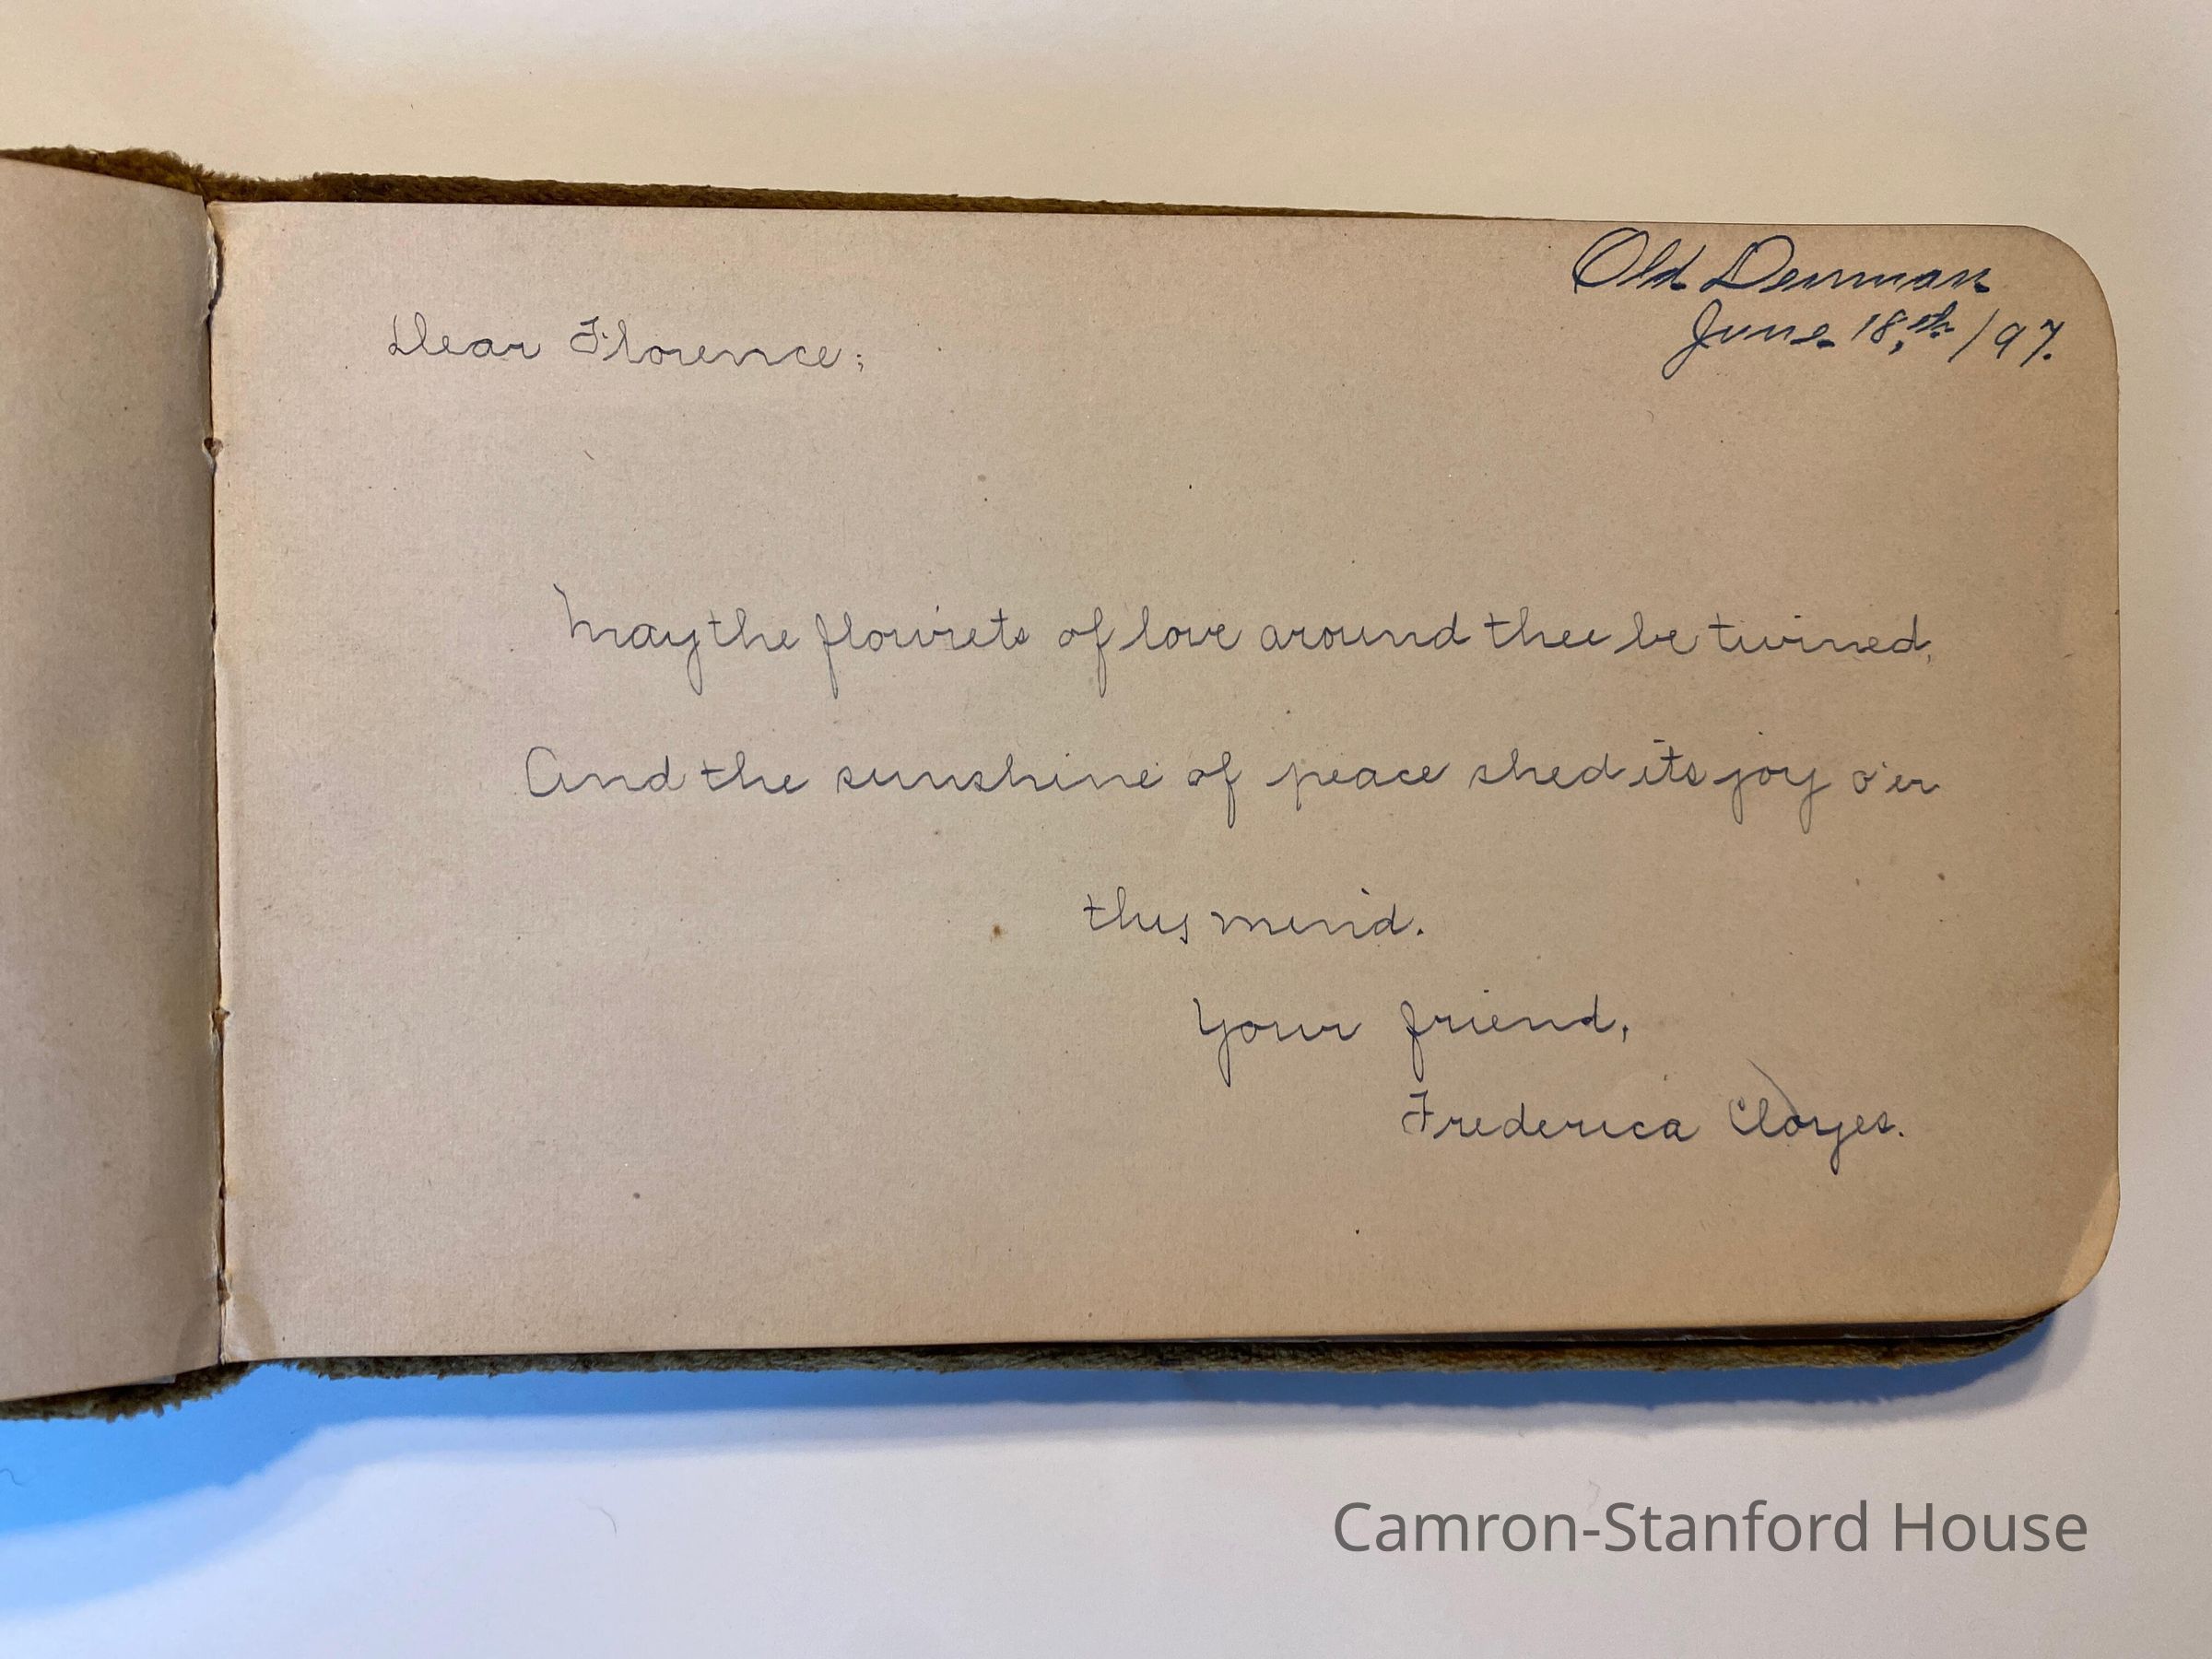 Old Denman
June 18,th /97.
Dear Florence;
May the flowrets of love around thee be twined,
And the sunshine of peace shed its joy o'er
thy mind.
Your friend,
Frederica Cloyes.
Camron-Stanford House